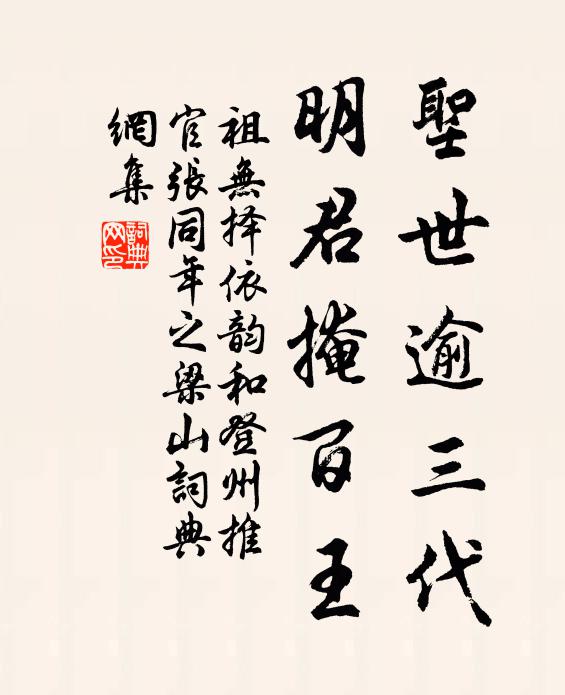 聖世逾三代
明君掩百王
祖無择依韵和登州推
官張同年之梁山詞典
網集
詞典网印